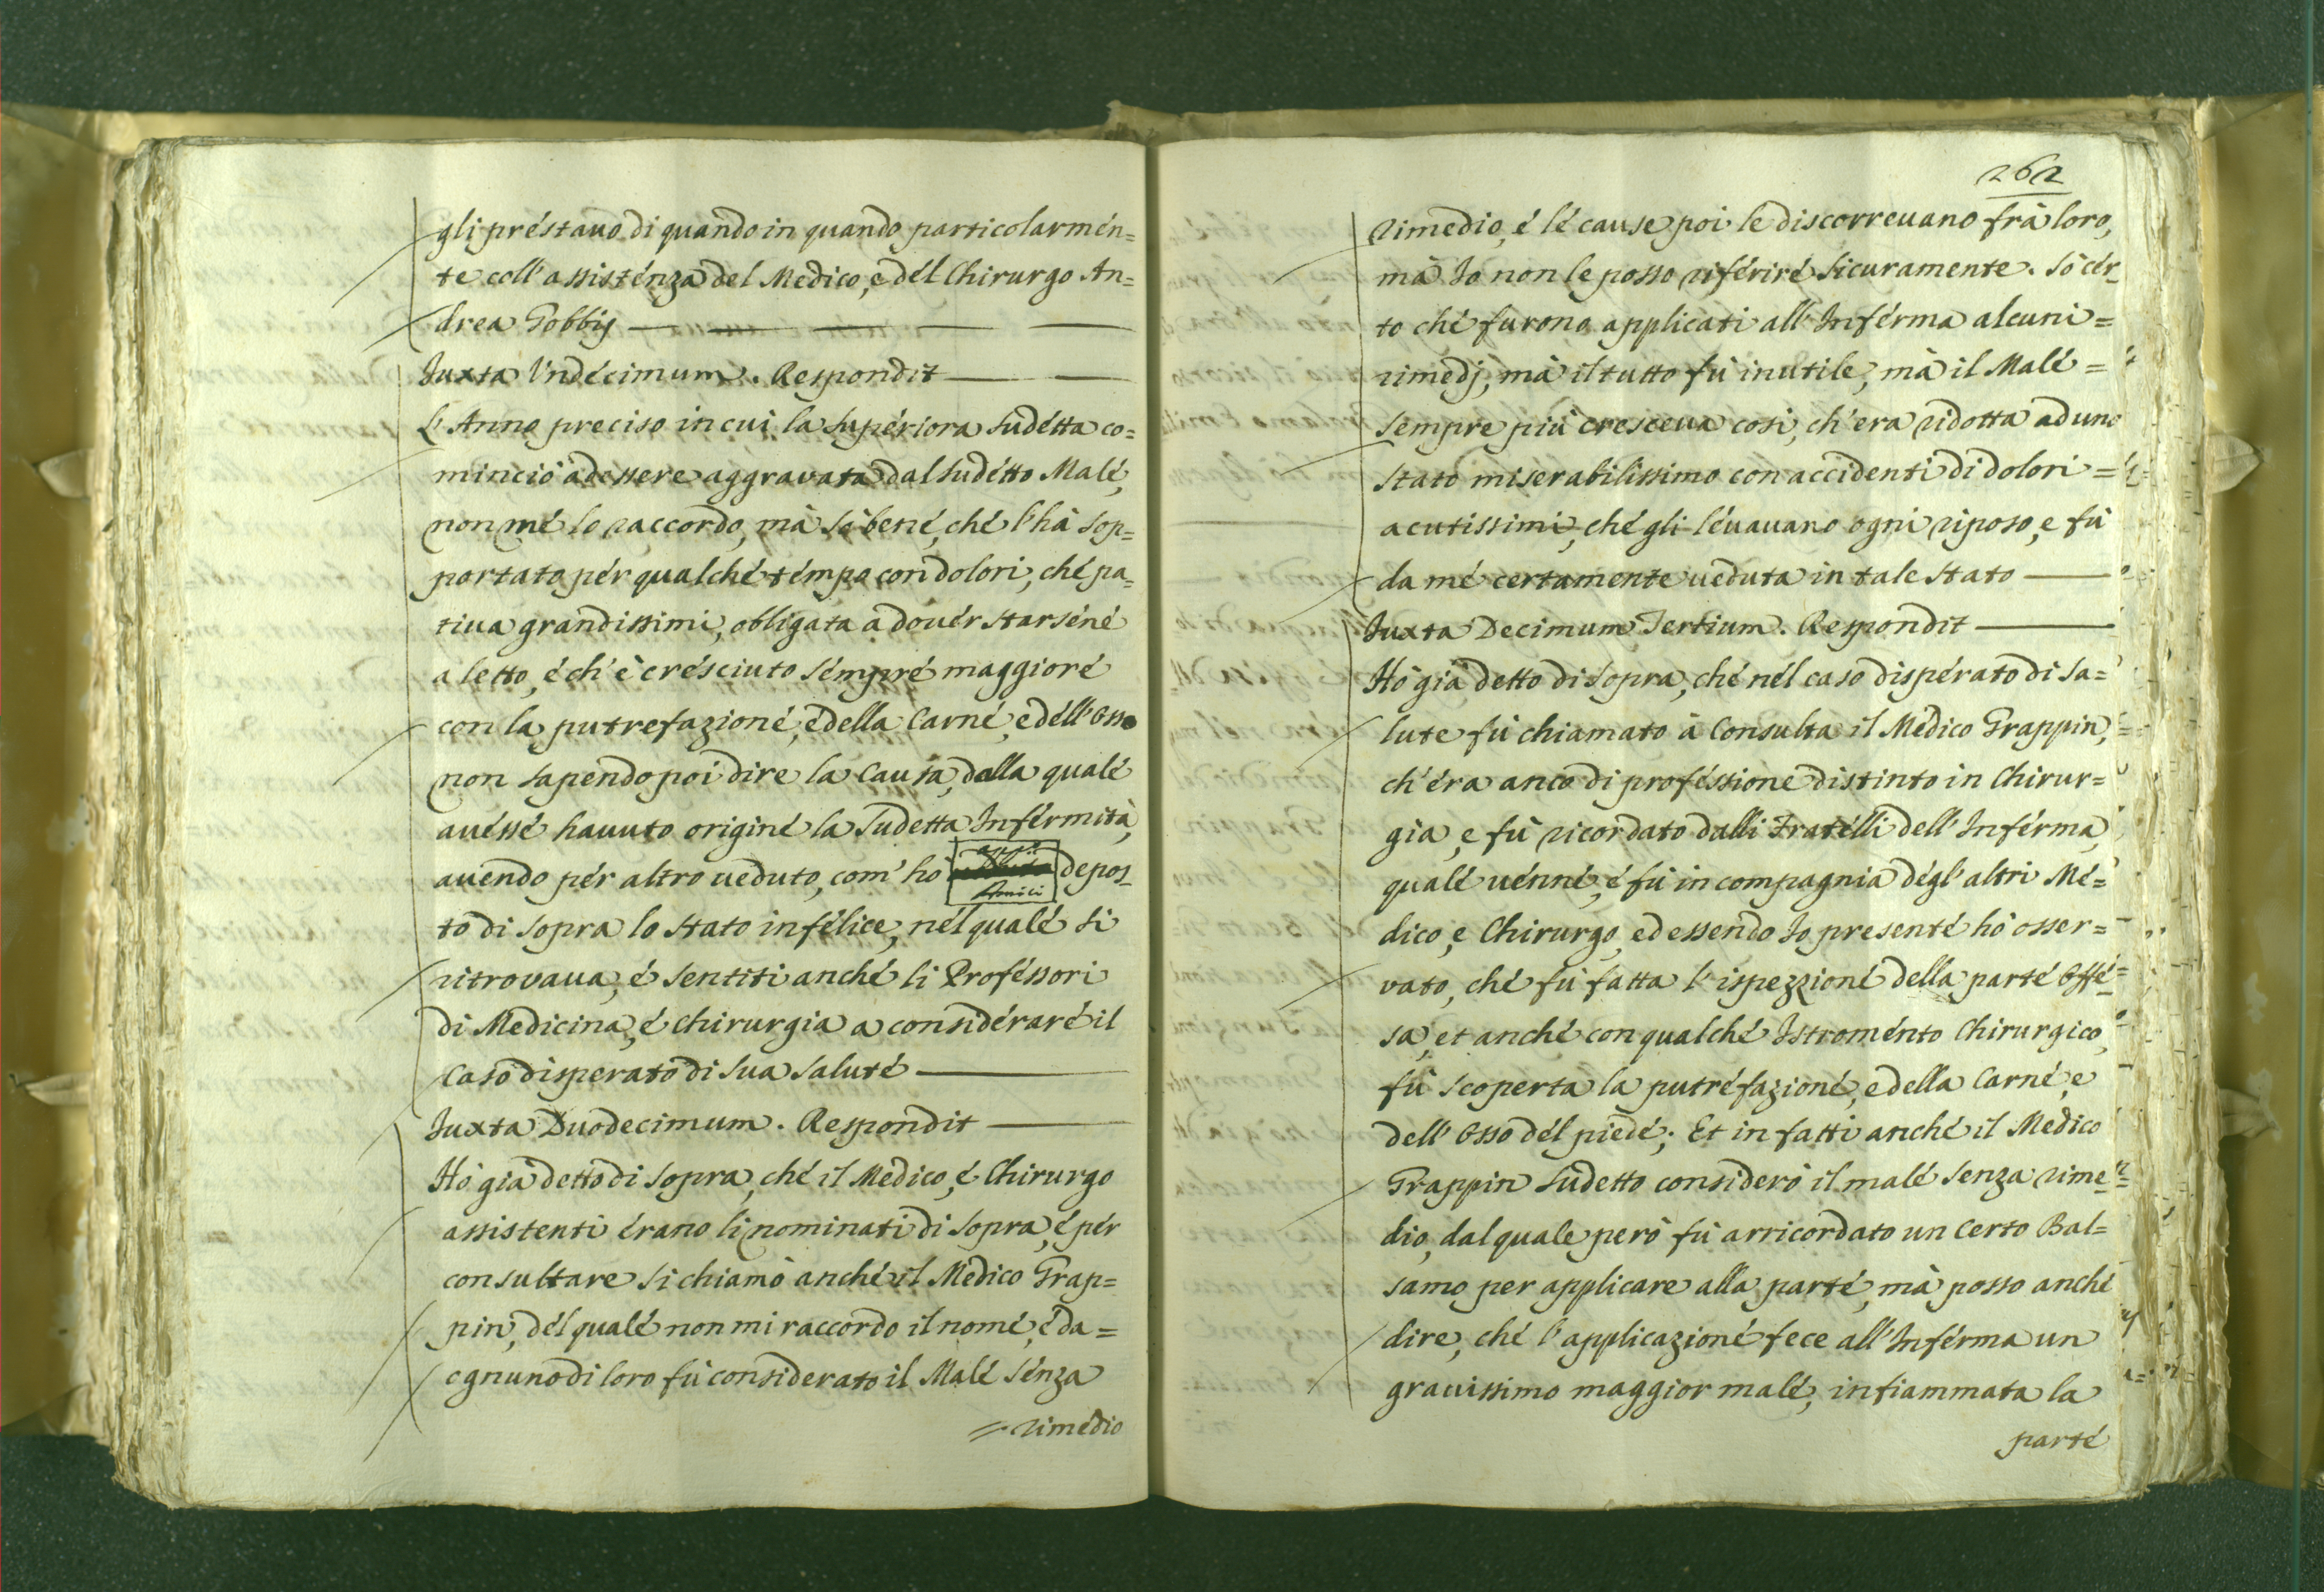 gli préstauo di quando in quando particolarmén=
te coll'assisténza del Medico, e dél Chirurgo An=
drea Gobbij
Iuxta Undécimum. Respondit
L'Anno preciso in cui la supériora sudétta co=
minciò ad essere aggravata dal sudétto Malé,
non mé lo raccordo, mà sò bené, ché l'hà sop=
portato pér qualché témpo con dolori, ché pa=
tiua grandissimi, obligata a douér starséné
a letto, é ch'è crésciuto sémpré maggioré
con la putrefazioné, é della Carné, e déll'Osso
non sapendo poi dire la Causa, dalla qualé
auéssé hauuto originé la Sudetta Inférmità,
auendo pér altro ueduto, com'hò depos=
to di sopra lo stato infélice, nél qualé si
ritrovaua, é sentiti anché li Proféssori
di Medicina, é Chirurgia a considéraré il
Caso disperato di sua saluté
Iuxta Duodecimum. Respondit
Hò già detto di sopra, ché il Medico, é Chirurgo
assistenti érano li nominati di sopra, é pér
consultare si chiamò anché il Medico Grap=
pin, dél qualé non mi raccordo il nomé, é da=
ognuno di loro fù considerato il Malé sénza
=rimedio
262
rimedio, é lé cause poi le discorreuano frà loro,
mà Io non le posso riférire sicuramente. Sò cér=
to ché furono applicati all'Inférma alcuni=
rimedj, mà il tutto fù inutile, mà il Malé=
sempre più cresceua così, ch'era ridotta ad uno
stato miserabilissimo con accidenti di dolori=
acutissimi, ché gli léuauano ogni riposo, e fù
da mé certamente ueduta in tale stato
Iuxta Decimum Tertium. Respondit
Hò già detto di sopra, ché nél caso dispérato di sa=
lute fù chiamato à Consulta il Medico Grappin,
ch'éra anco di proféssione distinto in Chirur=
gia, e fù ricordato dalli Fratélli dell'Inférma,
qualé uénné, é fù in compagnia dégl'altri Mé=
dico, e Chirurgo, ed essendo Io presenté hò osser=
vato, ché fù fatta l'ispezzioné della parté Offé=
sa, et anché con qualché Istroménto Chirurgico,
fù scoperta la putréfazioné, e della Carné, e
dell'Osso dél piedé; Et in fatti anché il Medico
Grappin sudetto considerò il malé senza rime=
dio, dal quale però fù arricordato un certo Bal=
samo per applicare alla parté, mà posso anché
dire, ché l'applicazioné fece all'Inférma un
grauissimo maggior malé, infiammata la
parté